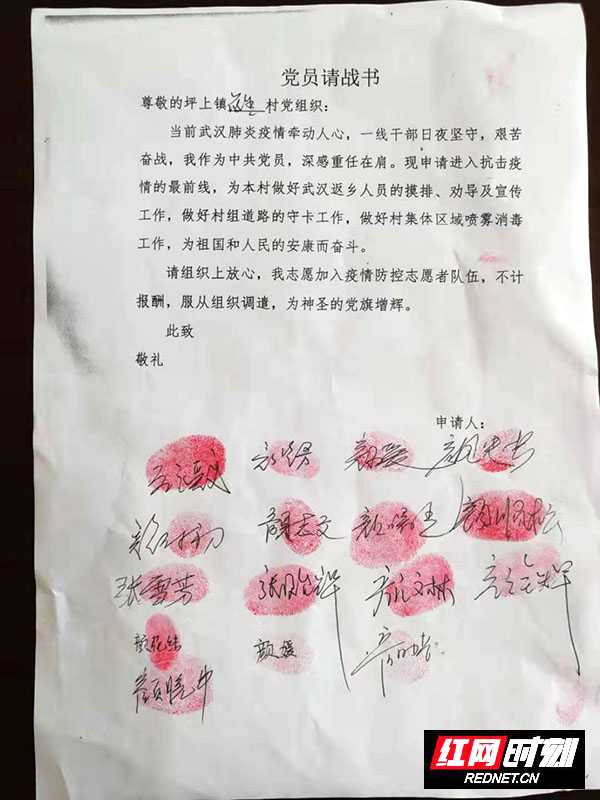 党员请战书
尊敬的坪上镇村党组织：
当前武汉肺炎疫情牵动人心，一线干部日夜坚守，艰苦
奋战，我作为中共党员，深感重任在肩。现申请进入抗击疫
情的最前线，为本村做好武汉返乡人员的摸排、劝导及宣传
工作，做好村组道路的守卡工作，做好村集体区域喷雾消毒
工作，为祖国和人民的安康而奋斗。
请组织上放心，我志愿加入疫情防控志愿者队伍，不计
报酬，服从组织调遣，为神圣的党旗增辉。
此致
敬礼
申请人：
颜志文
张雪芳
颜媛
颜晓中
红网时刻
REDNET.CN